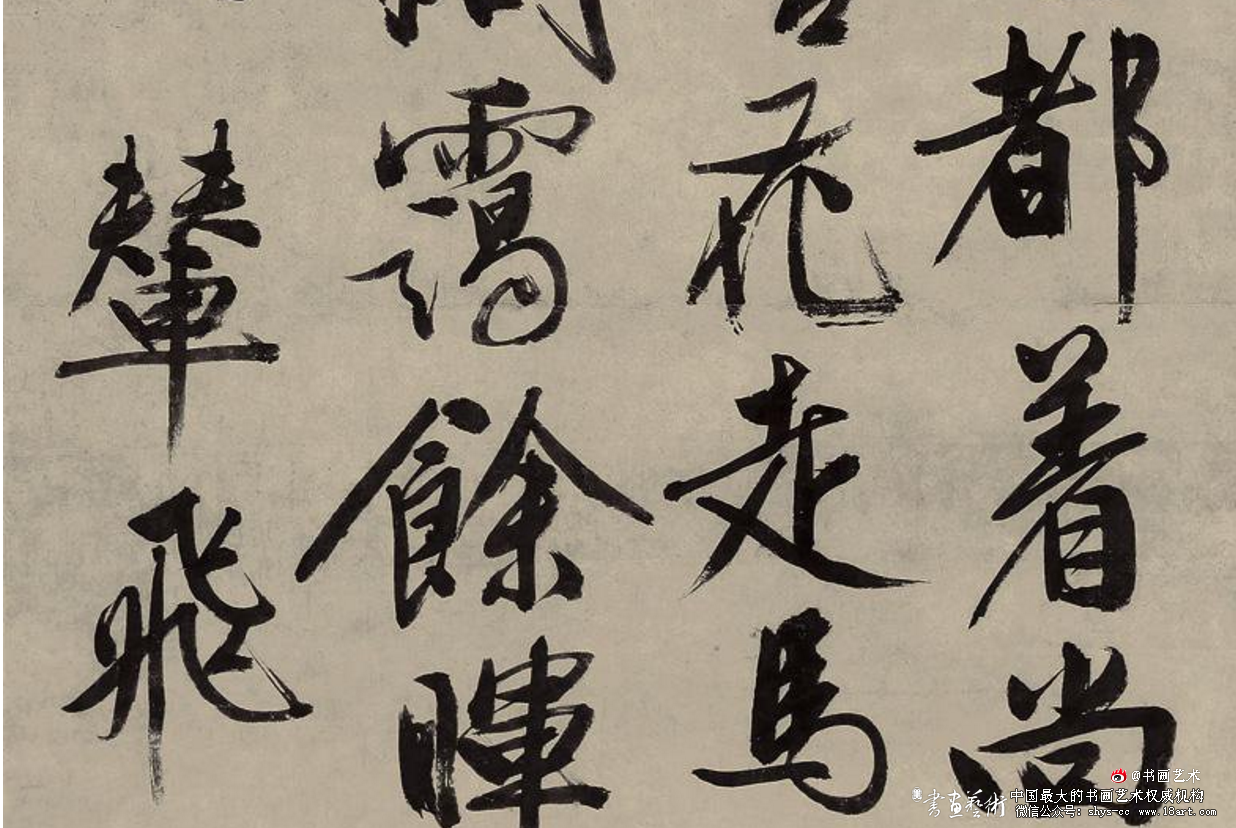 都着尚
花走馬
靄餘暉
輦飛
@书画艺术
書畫藝術
中国最大的书画艺术权威机构
微信公众号: shys-cc www.18art.com